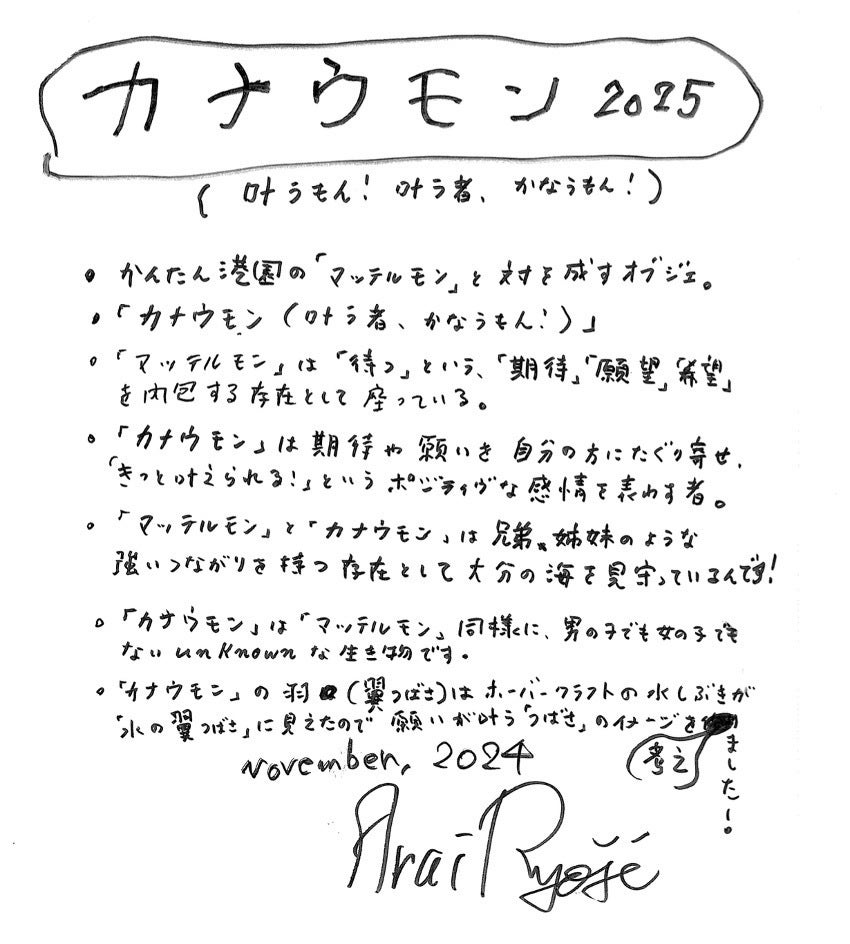 カナウモン 2025
(叶うもん! 叶う者、かなうもん!)
• かんたん港園の「マッテルモン」と対を成すオブジェ。
•「カナウモン(叶う者、かなうもん!)」
•「マッテルモン」は「待つ」という、「期待」「願望」「希望」
を内包する存在として座っている。
•「カナウモン」は期待や願いを自分の方にたぐり寄せ、
「きっと叶えられる!」というポジティヴな感情を表わす者。
•「マッテルモン」と「カナウモン」は兄弟、姉妹のような
強いつながりを持つ存在として大分の海を見守っているんです!
•「カナウモン」は「マッテルモン」同様に、男の子でも女の子でも
ない unknown な生き物です。
•「カナウモン」の羽(翼つばさ)はホーバークラフトの水しぶきが
「水の翼つばさ」に見えたので願いが叶う「つばさ」のイメージを
考え
ましたー。
November, 2024
Arai Ryoji